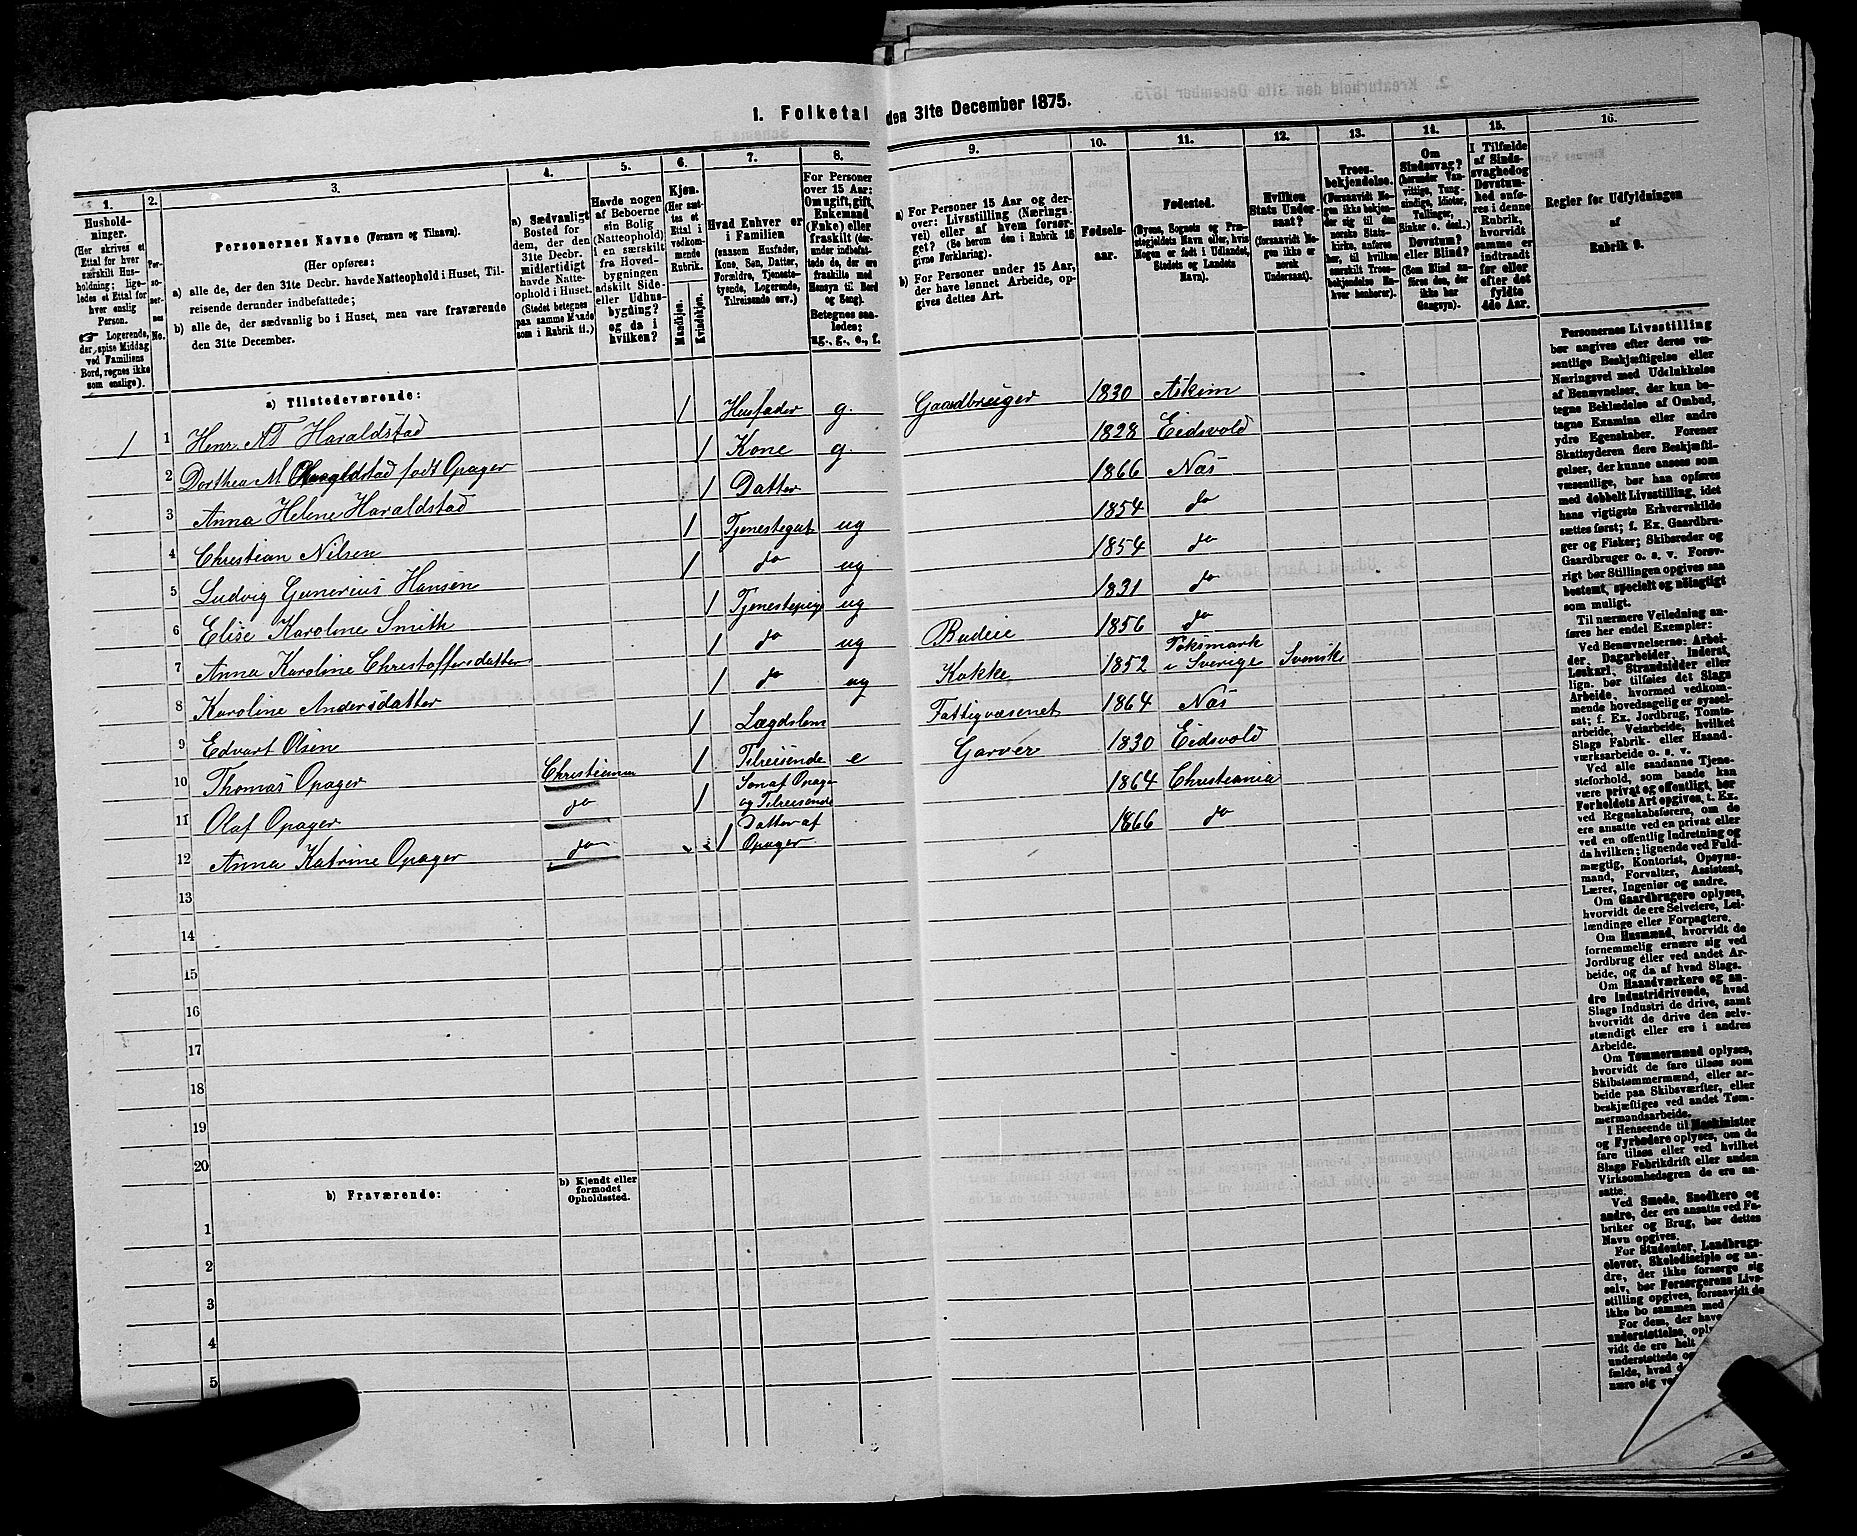 1. Folketal den 31te December 1875.
1. 2. 3. 4. 5. 6. 7. 8. 9. 10. 11. 12. 13. 14. 15. 16.
Hushold-
ninger.
(Her skrives et
Ettal for hver
særskilt Hus-
holdning; lige-
ledes et Ettal for
hver enslig
Person.
☞ Logerende,
der spise Middag
ved Familiens
Bord, regnes ikke
som enslige).
Per-
so-
ner-
nes
No.
Personernes Navne (Fornavn og Tilnavn).
(Her opføres:
a) alle de, der den 31te Decbr. havde Natteophold i Huset, Til-
reisende derunder indbefattede;
b) alle de, der sædvanlig bo i Huset, men vare fraværende
den 31te December.
a) Sædvanligt
Bosted for
dem, der den
31te Decbr.
midlertidigt
havde Natte-
ophold i Huset.
(Stedet betegnes
paa samme Maade
som i Rubrik 11.)
Havde nogen
af Beboerne
sin Bolig
(Natteophold)
i en særskilt
fra Hoved-
bygningen
adskilt Side-
eller Udhus-
bygning?
og da i
hvilken?
Kjøn.
(Her sæt-
tes et
Ettal i
vedkom-
mende
Rubrik.
Mandkjøn.
Kvindekjøn.
Hvad Enhver er
i Familien
(saasom Husfader,
Kone, Søn, Datter,
Forældre, Tjeneste-
tyende, Logerende,
Tilreisende osv.)
For Personer
over 15 Aar:
Om ugift, gift,
Enkemand
(Enke) eller
fraskilt (der-
under indbefat-
tede de, der ere
fraskilte med
Hensyn til Bord
og Seng).
Betegnes saa-
ledes:
ug., g., e., f.
a) For Personer 15 Aar og der-
over: Livsstilling (Nærings-
vei) eller af hvem forsør-
get? (Se herom den i Rubrik 16
givne Forklaring).
b) For Personer under 15 Aar,
der have lønnet Arbeide, op-
gives dettes Art.
Fødsels-
aar.
Fødested.
(Byens, Sognets og Præ-
stegjældets Navn eller, hvis
Nogen er født i Udlandet,
Stedets og Landets
Navn).
Hvilken
Stats Under-
saat?
(forsaavidt No-
gen ikke er
norsk
Undersaat).
Troes-
bekjendelse.
(Forsaavidt No-
gen ikke beken-
der sig til den
norske Stats-
kirke, anføres
her, til hvilken
særskilt Troes-
bekjendelse En-
hver henhører).
Om
Sindssvag?
(herunder Van-
vittige, Tung-
sindige, Idioter,
Tullinger,
Sinker o. desl.)
Døvstum?
eller Blind?
(Som Blind an-
føres den, der
ikke har
Gangsyn).
I Tilfælde
af Sinds-
svaghed og
Døvstum-
hed anfø-
res i denne
Rubrik,
hvorvidt
samme er
indtraadt
før eller
efter det
fyldte
4de Aar.
Regler for Udfyldningen
af
Rubrik 9.
a) Tilstedeværende:
1 1 Henr. AT Haraldstad 1 Husfader g. Gaardbruger 1830 Askim
2 Dorthea M Haraldstad født Opager 1 Kone g. 1828 Eidsvold
3 Anna Helene Haraldstad 1 Datter 1866 Næs
4 Christian Nilsen 1 Tjenestegut ug 1854 do
5 Ludvig Gunerius Hansen 1 do ug 1854 do
6 Elise Karoline Smith 1 Tjenestepige ug 1831 do
7 Anna Karoline Christoffersdatter 1 do ug Budeie 1856 do
8 Karoline Andersdatter 1 do ug Kokke 1852 Töksmark
i Sverige Svensk
9 Edvart Olsen 1 Lægdslem Fattigvæsenet 1864 Næs
10 Thomas Opager Christiania 1 Tilreisende e Garver 1830 Eidsvold
11 Olaf Opager do 1 Søn af Opager
og Tilreisende 1864 Christiania
12 Anna Katrine Opager do 1 Datter af
Opager 1866 do
13
14
15
16
17
18
19
20
b) Fraværende:
b) Kjendt eller
formodet
Opholdssted.
1
2
3
4
5
Personernes Livsstilling
bør angives efter deres væ-
sentlige Beskjæftigelse eller
Næringsvei med Udelukkelse
af Benævnelser, der kun be-
tegne Beklædelse af Ombud,
tagne Examina eller andre
ydre Egenskaber. Forener
Skatteyderen flere Beskjæfti-
gelser, der kunne ansees som
væsentlige, bør han opføres
med dobbelt Livsstilling, idet
hans vigtigste Erhvervskilde
sættes først; f. Ex. Gaardbru-
ger og Fisker; Skibsreder og
Gaardbruger o. s. v. Forøv-
rigt bør Stillingen opgives saa
bestemt, specielt og nøiagtigt
som muligt.
Til nærmere Veiledning an-
føres her endel Exempler:
Ved Benævnelserne: Arbei-
der, Dagarbeider, Inderst,
Løskarl, Strandsidder eller
lign. bør tilføies det Slags
Arbeide, hvormed vedkom-
mende hovedsagelig er syssel-
sat; f. Ex. Jordbrug, Tomte-
arbeide, Veiarbeide, hvilket
Slags Fabrik- eller Haand-
værksarbeide o. s. v.
Ved alle saadanne Tjene-
steforhold, som baade kan
være privat og offentligt, bør
Forholdets Art opgives, t. Ex.
ved Regnskabsførere, om de
ere ansatte ved en privat eller
ved en offentlig Indretning og
da hvilken; lignende ved Fuld-
mægtig, Kontorist, Opsyns-
mand, Forvalter, Assistent,
Lærer, Ingeniør og andre.
Om Gaardbrugere oplyses,
hvorvidt de ere Selveiere, Lei-
lændinge eller Forpagtere.
Om Husmænd, hvorvidt de
fornemmelig ernære sig ved
Jordbrug eller ved andet Ar-
beide, og da af hvad Slags.
Om Haandværkere og an-
dre Industridrivende, hvad
Slags Industri de drive, samt
hvorvidt de drive den selv-
stændigt eller ere i andres
Arbeide.
Om Tømmermænd oplyses,
hvorvidt de fare tilsøs som
Skibstømmermænd, eller ar-
beide paa Skibsværfter, eller
beskjæftiges ved andet Tøm-
mermandsarbeide.
I Henseende til Maskinister
og Fyrbødere oplyses, om de
fare tilsøs eller ved hvilket
Slags Fabrikdrift eller anden
Virksomhedsgren de ere an-
satte.
Ved Smede, Snedkere og
andre, der ere ansatte ved Fa-
briker og Brug, bør dettes
Navn opgives.
For Studenter, Landbrugs-
elever, Skoledisciple og an-
dre, der ikke forsørge sig
selv, bør Forsørgerens Livs-
stilling opgives, forsaavidt de
ikke bo sammen med
For dem, der have
understøttelse,
vidt de ere helt
understøttede og
fælde, hvad
nære sig